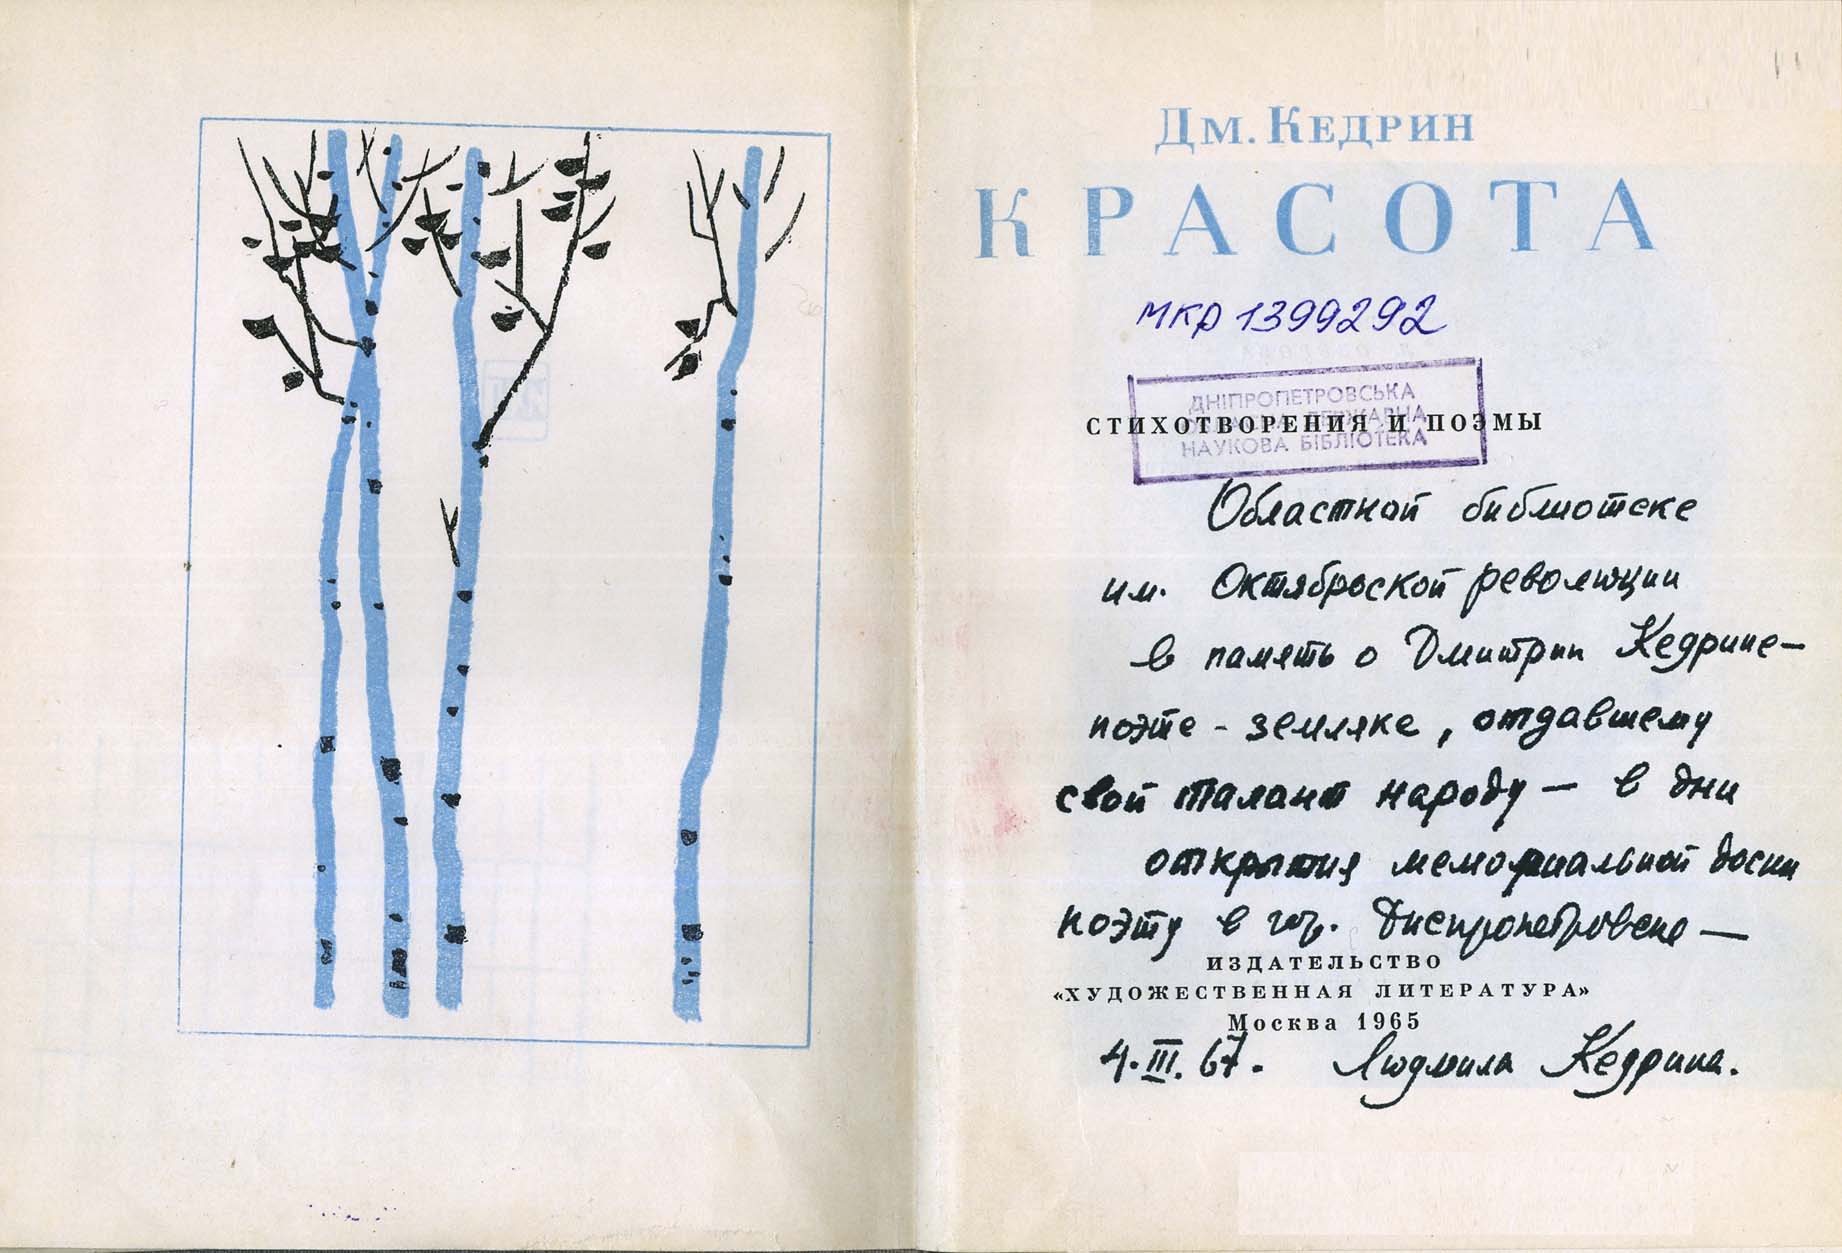 Дм. Кедрин
КРАСОТА
МКР 1399292
ДНІПРОПЕТРОВСЬКА
ОБЛАСНА ДЕРЖАВНА
НАУКОВА БІБЛІОТЕКА
СТИХОТВОРЕНИЯ И ПОЭМЫ
Областной библиотеке
им. Октябрьской революции
в память о Дмитрии Кедрине –
поэте - земляке, отдавшему
свой талант народу – в дни
открытия мемориальной доски
поэту в гор. Днепропетровске –
ИЗДАТЕЛЬСТВО
«ХУДОЖЕСТВЕННАЯ ЛИТЕРАТУРА»
Москва 1965
4. III. 67. Людмила Кедрина.